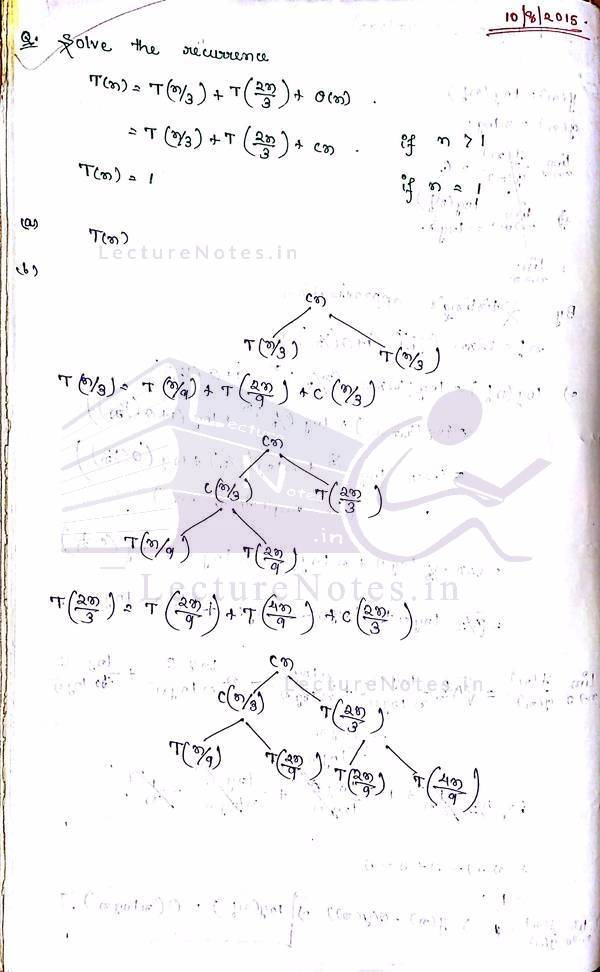 10/8/2015.
Q. Solve the recurrence
T(n) = T(n/3) + T(2n/3) + O(n) .
= T(n/3) + T(2n/3) + cn . if n > 1
T(n) = 1 if n = 1
(a) T(n)
LectureNotes.in
(b)
cn
T(n/3) T(n/3)
T(n/3) = T(n/9) + T(2n/9) + C(n/3)
cn
C(n/3) T(2n/3)
T(n/9) T(2n/9)
LectureNotes.in
T(2n/3) = T(2n/9) + T(4n/9) + C(2n/3)
cn
LectureNotes.in
C(n/3) T(2n/3)
T(n/9) T(2n/9) T(2n/9) T(4n/9)